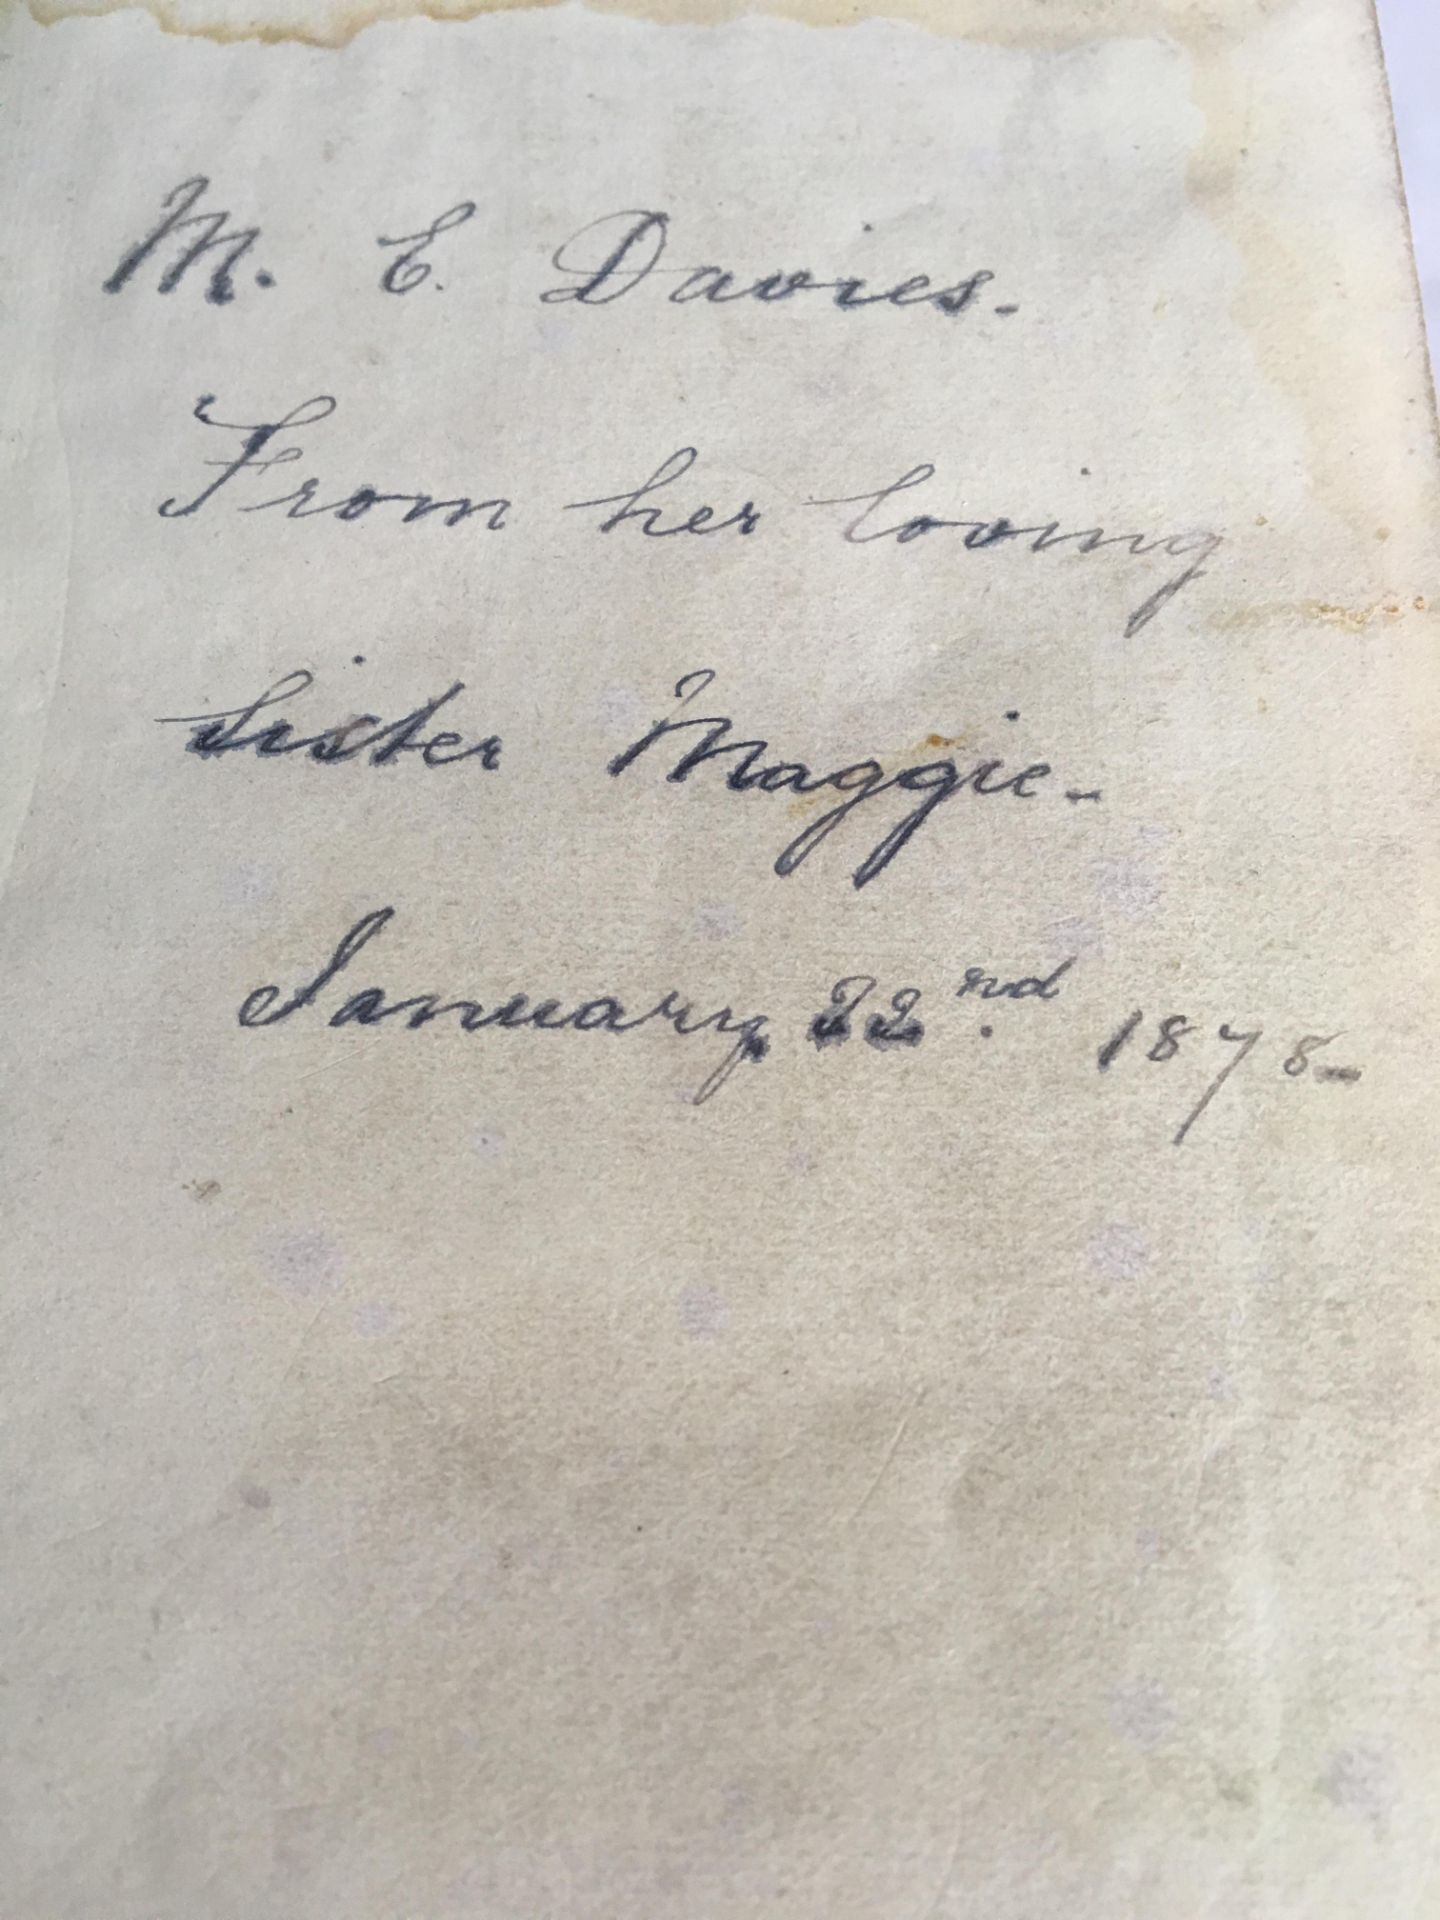 M. E. Davies.
From her loving
Sister Maggie.
January 22nd. 1878